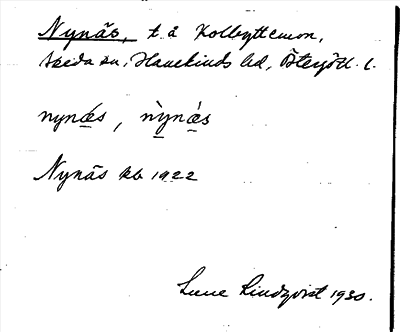 Nynäs, t. å Kolbyttemon,
Skeda sn, Hanekinds hd, Östergötl. l.
nynæ̀s, nỳnæ̀s
Nynäs kb 1922
Sune Lindqvist 1930.